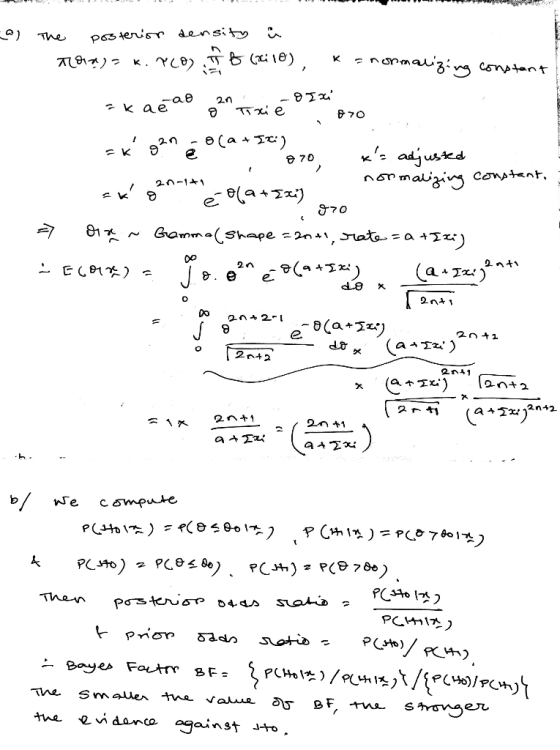 (a) The posterior density is
π(θ|x) = k. γ(θ) ∏_{i=1}^{n} f(xi|θ), k = normalizing constant
= k a e^{-aθ} θ^{2n} πxi e^{-θΣxi}, θ>0
= k' θ^{2n} e^{-θ(a+Σxi)} θ>0, k' = adjusted
normalizing constant.
= k' θ^{2n-1+1} e^{-θ(a+Σxi)}, θ>0
⇒ θ|x ~ Gamma(shape = 2n+1, rate = a+Σxi)
∴ E(θ|x) = ∫_0^∞ θ. θ^{2n} e^{-θ(a+Σxi)} dθ × (a+Σxi)^{2n+1} / Γ2n+1
= ∫_0^∞ θ^{2n+2-1} / Γ2n+2 e^{-θ(a+Σxi)} dθ × (a+Σxi)^{2n+2}
× (a+Σxi)^{2n+1} / Γ2n+1 × Γ2n+2 / (a+Σxi)^{2n+2}
= 1 × 2n+1 / a+Σxi = (2n+1 / a+Σxi)
b/ We compute
P(H0|x) = P(θ ≤ θ0|x), P(H1|x) = P(θ > θ0|x)
& P(H0) = P(θ ≤ θ0), P(H1) = P(θ > θ0).
Then posterior odds ratio = P(H0|x) / P(H1|x)
& prior odds ratio = P(H0)/P(H1).
∴ Bayes Factor BF = {P(H0|x)/P(H1|x)}/{P(H0)/P(H1)}
The smaller the value of BF, the stronger
the evidence against H0.